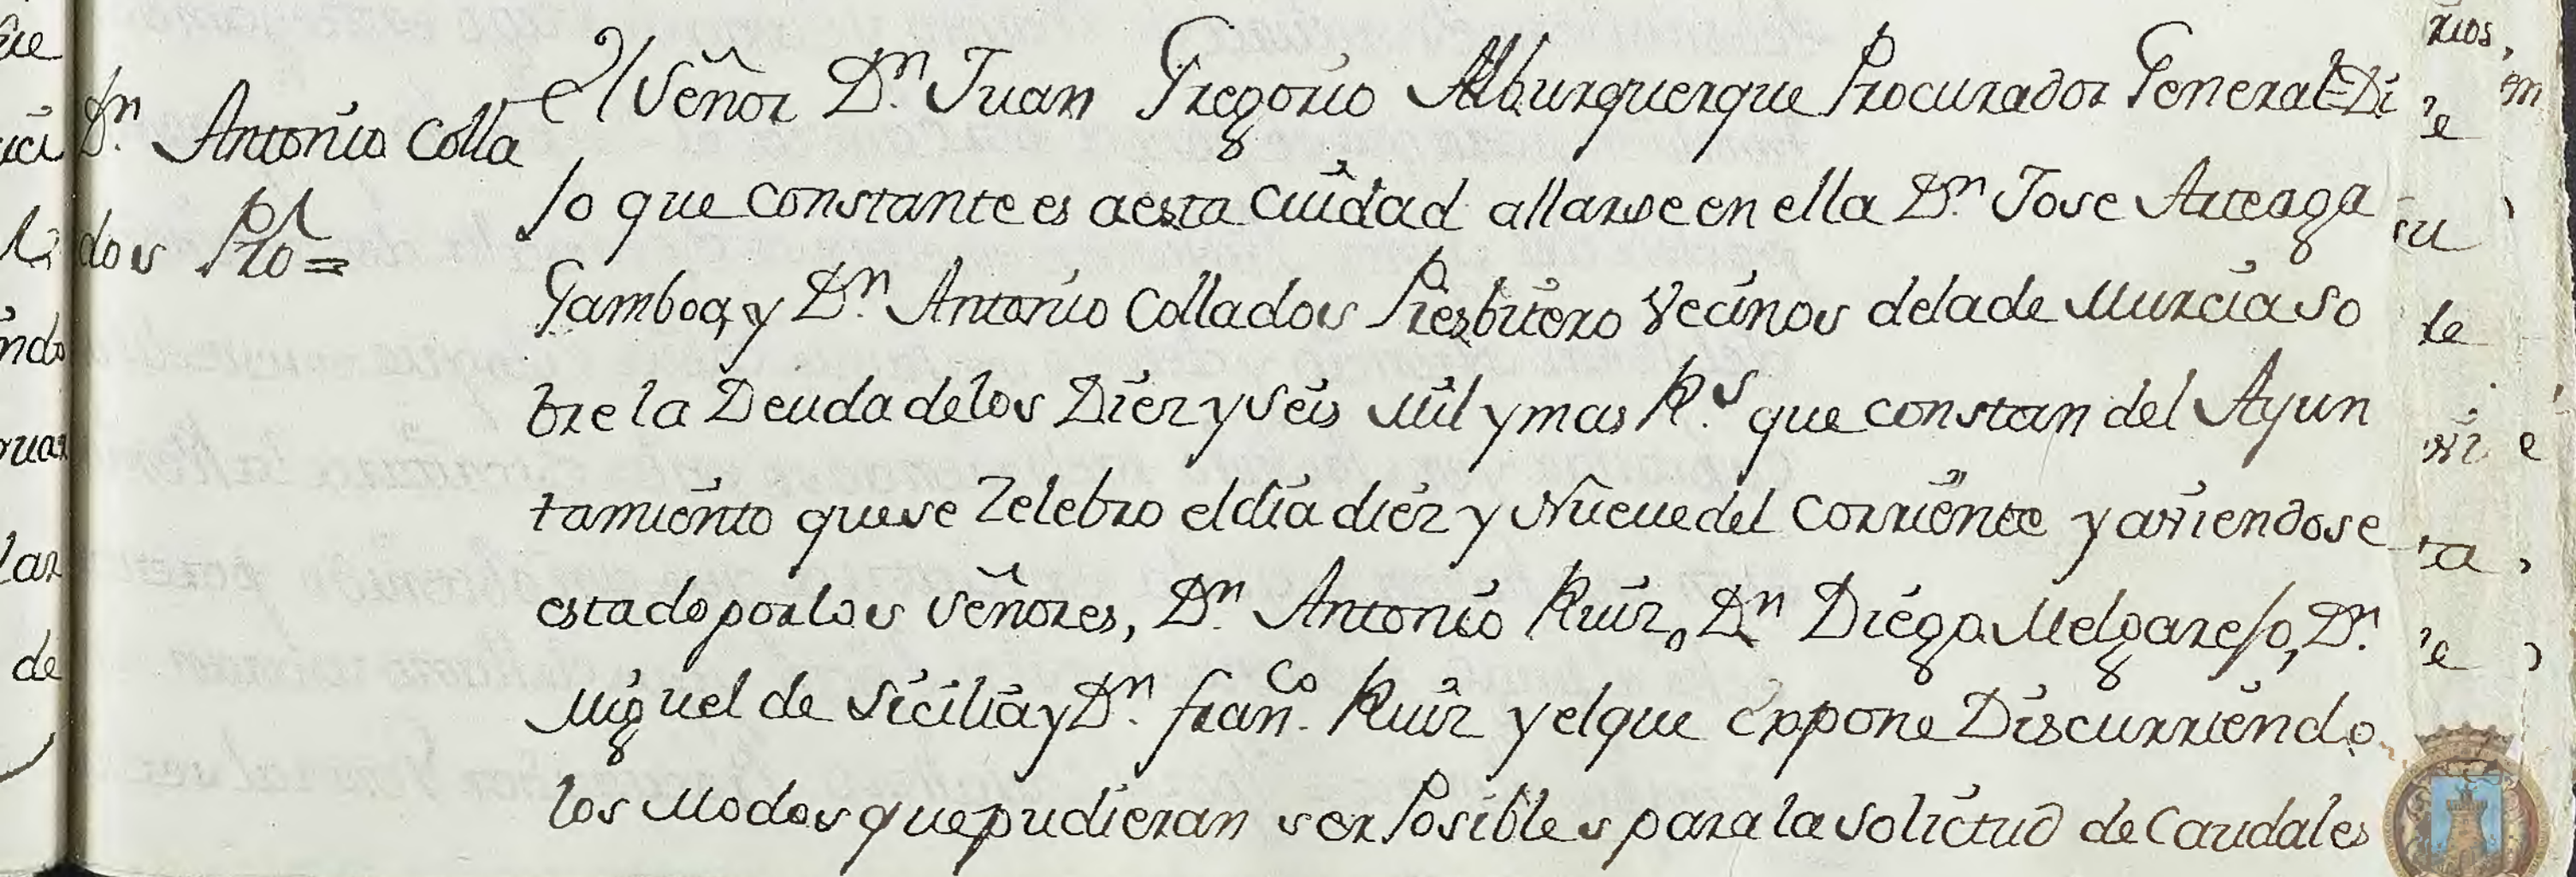 Dn. Antonio Colla
dos Pro =
el Señor Dn. Juan Gregorio Alburquerque Procurador General Di
Jo que constante es aesta Ciuidad allarse en ella Dn. Jose Arteaga
Gamboa, y Dn. Antonio Collados Presbitero Vecinos delade Murcia so
bre la Deuda delos Diez y seis mil y mas Rs. que constan del Ayun
tamiento quese Zelebro eldia diez y Nueue del Corriente y auiendose
estado por los Señores, Dn. Antonio Ruiz, Dn Diego Melgarejo, Dn.
Miguel de Sicilia y Dn. Franco. Ruiz y elque expone Discurriendo
los Modos que pudieran ser Posibles para la solicitud de Caudales